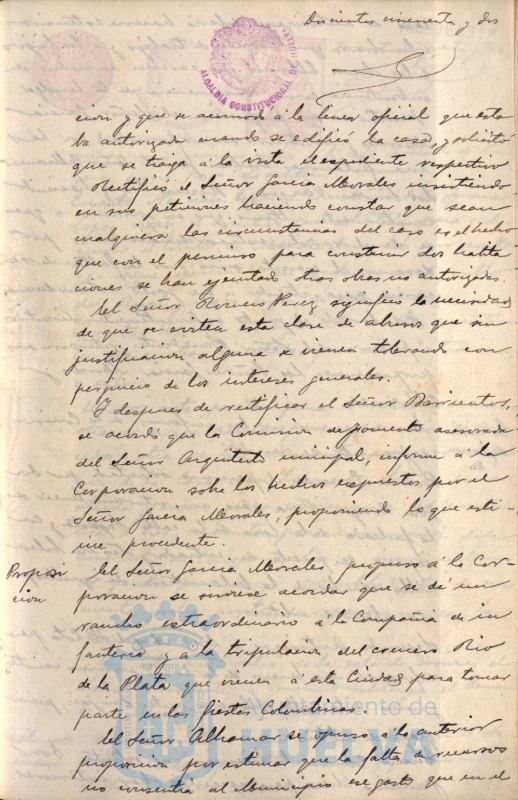 Doscientos cincuenta y dos
ALCALDIA CONSTITUCIONAL DE HUELVA
cion y que se acomodó á la linea oficial que esta
ba autorizada cuando se edificó la casa, y solicitó
que se traiga á la vista el espediente respectivo
Rectificó el Señor Garcia Morales insistiendo
en sus peticiones haciendo constar que sean
cualquiera las circunstancias del caso es el hecho
que con el permiso para construir dos habita
ciones se han ejecutado otras obras no autorizadas.
El Señor Romero Perez significó la necesidad
de que se eviten esta clase de abusos que sin
justificacion alguna se vienen tolerando con
perjuicio de los intereses generales.
Y despues de rectificar el Señor Barrientos,
se acordó que la Comision de fomento asesorada
del Señor Arquitecto municipal, informe á la
Corporacion sobre los hechos expuestos por el
Señor Garcia Morales, proponiendo lo que esti-
me procedente.
Proposi
cion
El Señor Garcia Morales propuso á la Cor-
poracion se sirviese acordar que se dé un
rancho extraordinario á la Compañia de in
fanteria y á la tripulacion del crucero Rio
de la Plata que vienen á esta Ciudad para tomar
parte en las fiestas Colombinas.
El Señor Alhamar se opuso á la anterior
proposicion por estimar que la falta de recursos
no consentia al Municipio ese gasto que en el
Ayuntamiento de
HUELVA